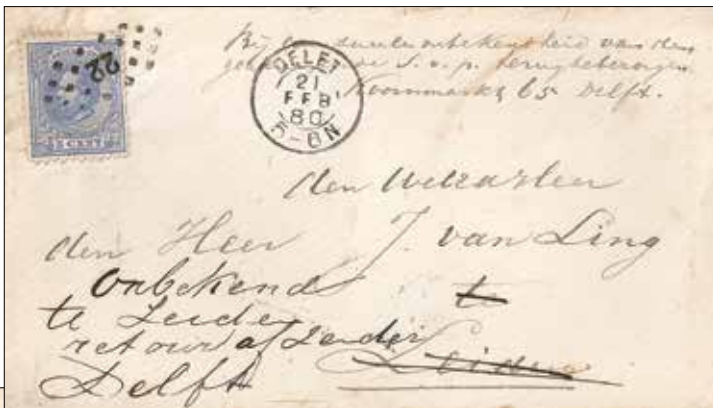 22
5 CENT
DELFT
21
FEB
80
5-8N
Bij onbekendheid van den
s.v.p. terugbezorgen
Koornmarkt 65 Delft.
den Heer J. van Ling
onbekend t
te Leide
retour afzender Leiden
Delft